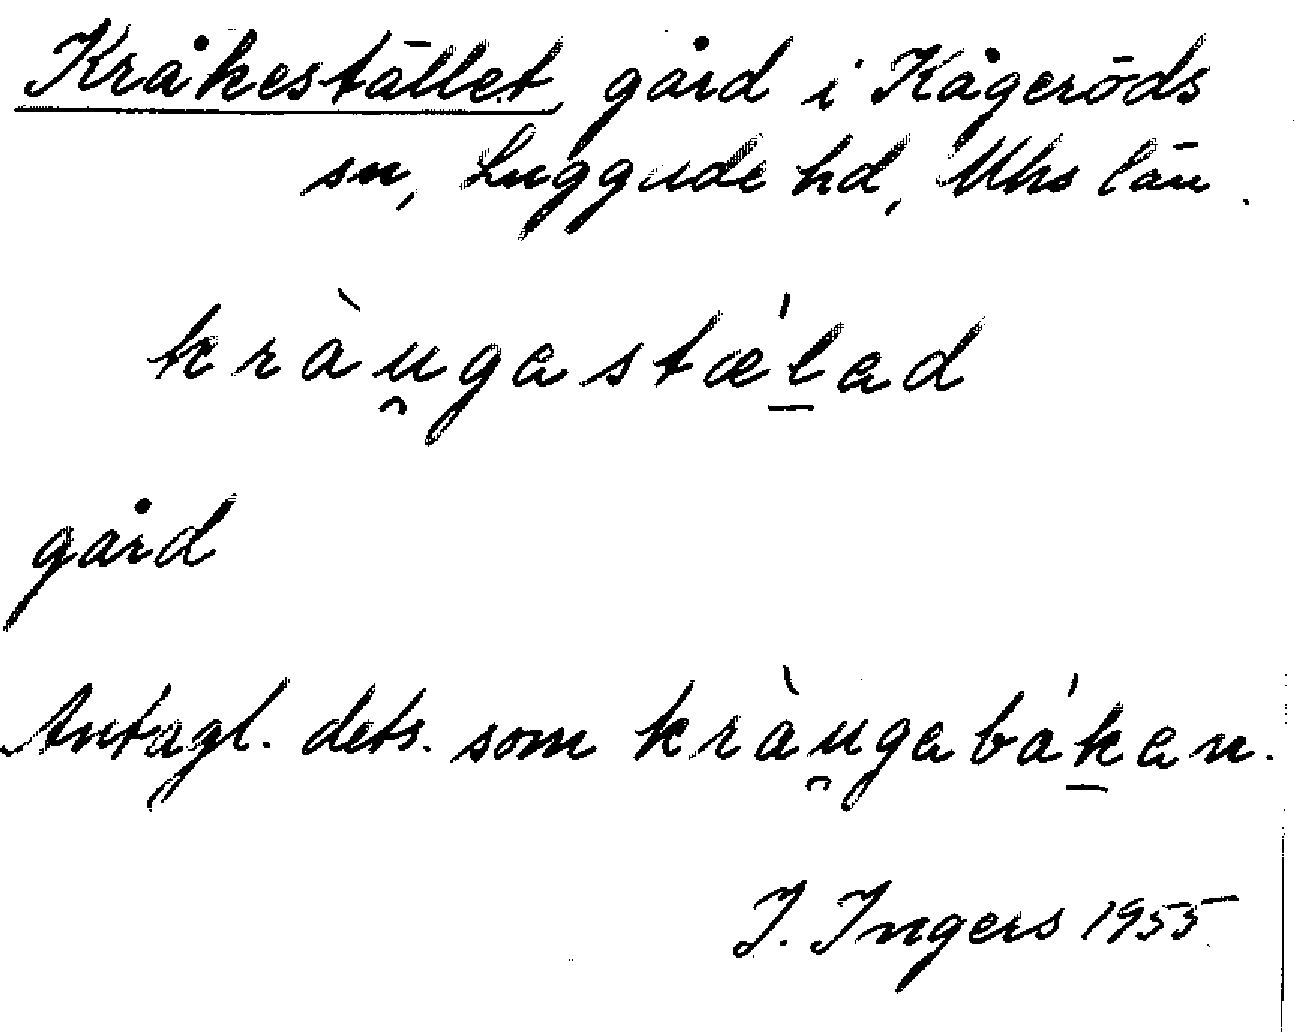 Kråkestället, gård i Kågeröds
sn, Luggude hd, Mhs län.
kràu̯gastæ´l̲ad
gård
Antagl. dets. som kràu̯gabák̲an.
I. Ingers 1955